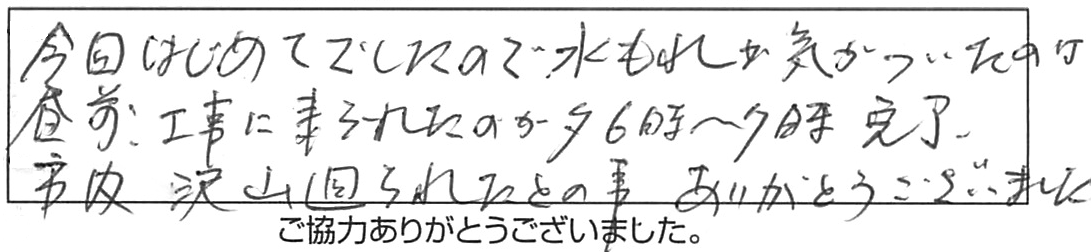 今回はじめてでしたので、水もれが気がついたのは
昼前、工事に来られたのが夕6時〜7時完了、
市内沢山回られたとの事ありがとうございました
ご協力ありがとうございました。